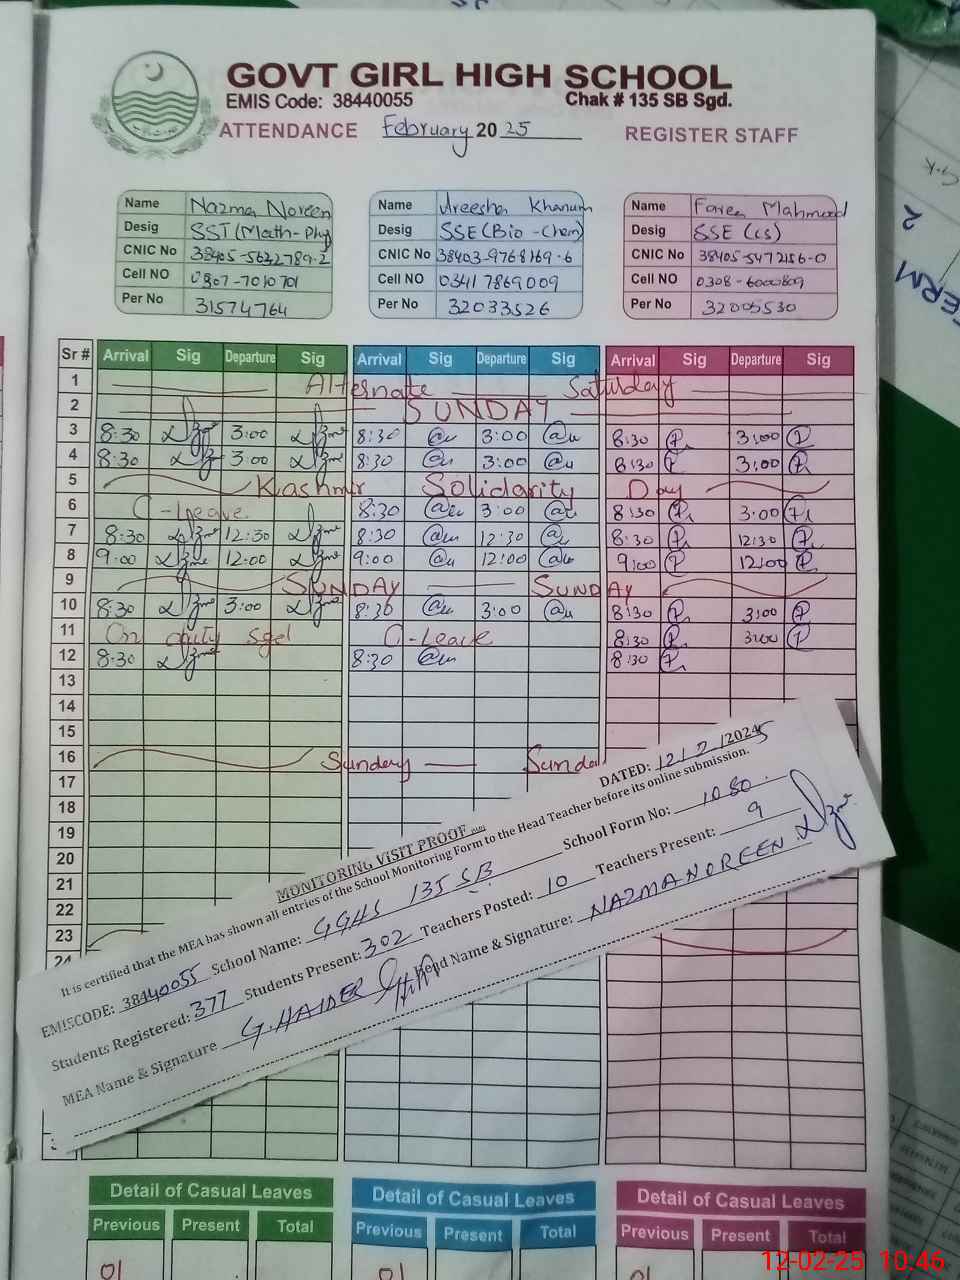 GOVT GIRL HIGH SCHOOL
EMIS Code: 38440055 Chak # 135 SB Sgd.
ATTENDANCE February 2025 REGISTER STAFF
Name Nazma Noreen
Desig SST (Math-Phy)
CNIC No 38405-5632789-2
Cell NO 0307-7010701
Per No 31574764
Name Areesha Khanum
Desig SSE (Bio-Chem)
CNIC No 38403-9768169-6
Cell NO 0341 7869009
Per No 32033526
Name Mahmood
Desig SSE (CS)
CNIC No 38405-5472156-0
Cell NO 0308-6000809
Per No 32005530
Sr # Arrival Sig Departure Sig Arrival Sig Departure Sig Arrival Sig Departure Sig
1 Alternate Saturday
2 SUNDAY
3 8:30 3:00 8:30 3:00 8:30 3:00
4 8:30 3:00 8:30 3:00 8:30 3:00
5 Kashmir Solidarity Day
6 C-Leave 8:30 3:00 8:30 3:00
7 8:30 12:30 8:30 12:30 8:30 12:30
8 9:00 12:00 9:00 12:00 9:00 12:00
9 SUNDAY SUNDAY
10 8:30 3:00 8:30 3:00 8:30 3:00
11 On duty sgd C-Leave 8:30 3:00
12 8:30 8:30 8:30
13
14
15
16 Sunday Sunda
17
18
19
20
21
22
23
24
DATED: 12/2/2025
MONITORING VISIT PROOF
It is certified that the MEA has shown all entries of the School Monitoring Form to the Head Teacher before its online submission.
EMISCODE: 38440055 School Name: GGHS 135 SB School Form No: 1080
Students Registered: 377 Students Present: 302 Teachers Posted: 10 Teachers Present: 9
MEA Name & Signature G. HAIDER Head Name & Signature: NAZMA NOREEN
Detail of Casual Leaves Detail of Casual Leaves Detail of Casual Leaves
Previous Present Total Previous Present Total Previous Present Total
01 01 01
12-02-25 10:46
TERM 2